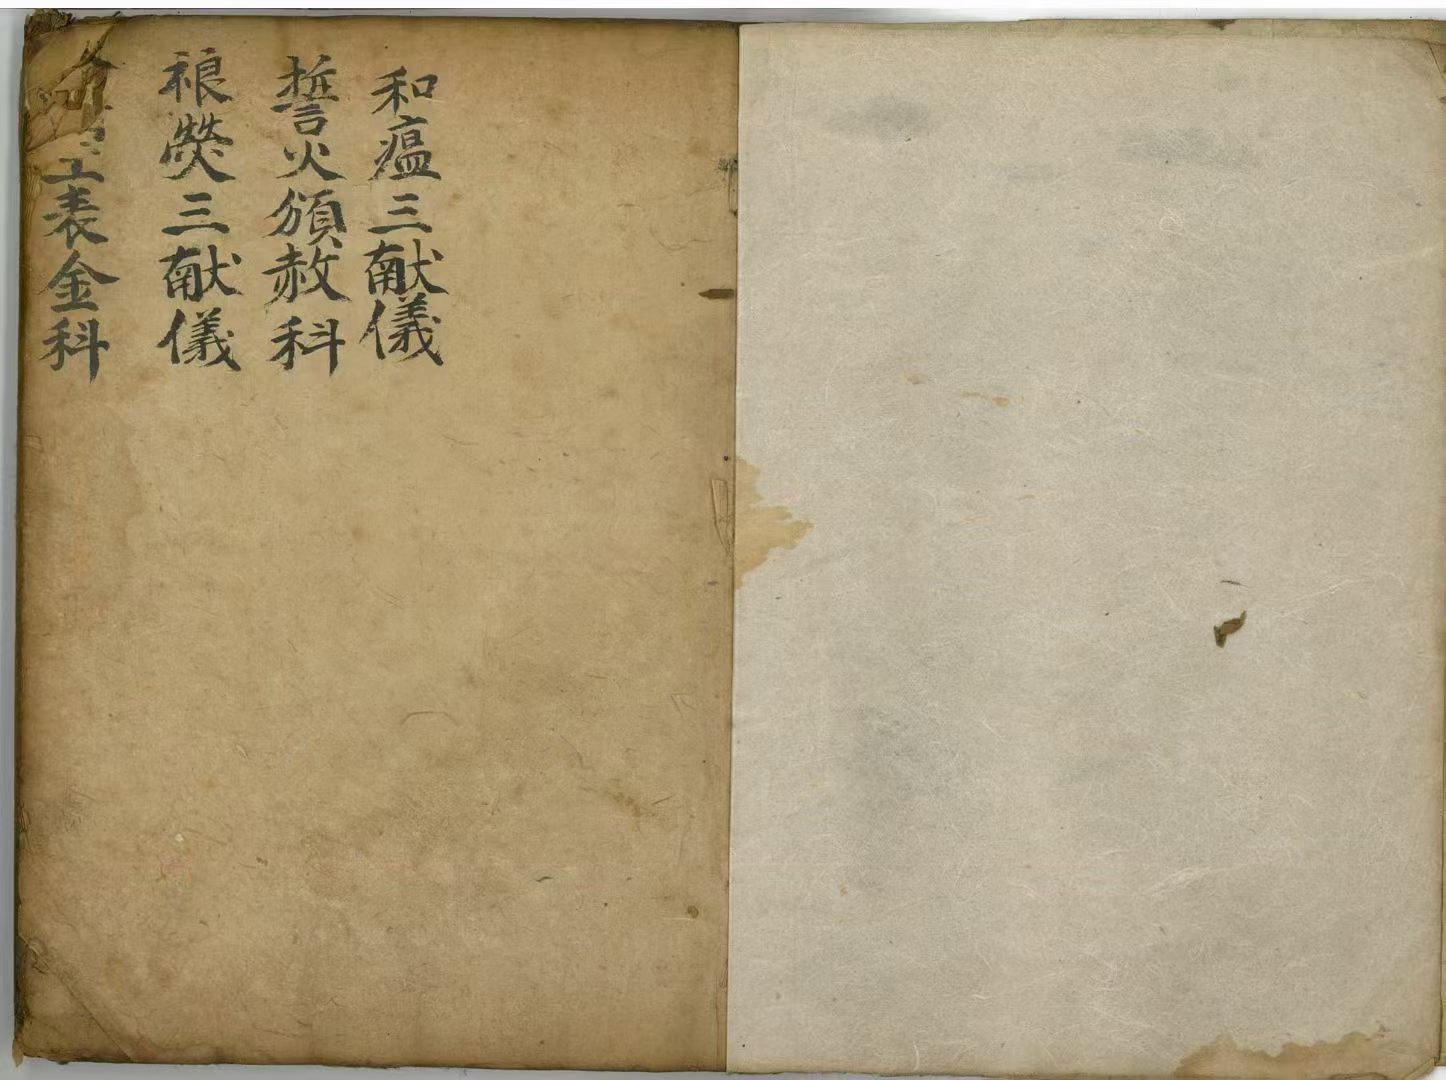 和瘟三献儀
誓火頒赦科
熒三献儀
表金科